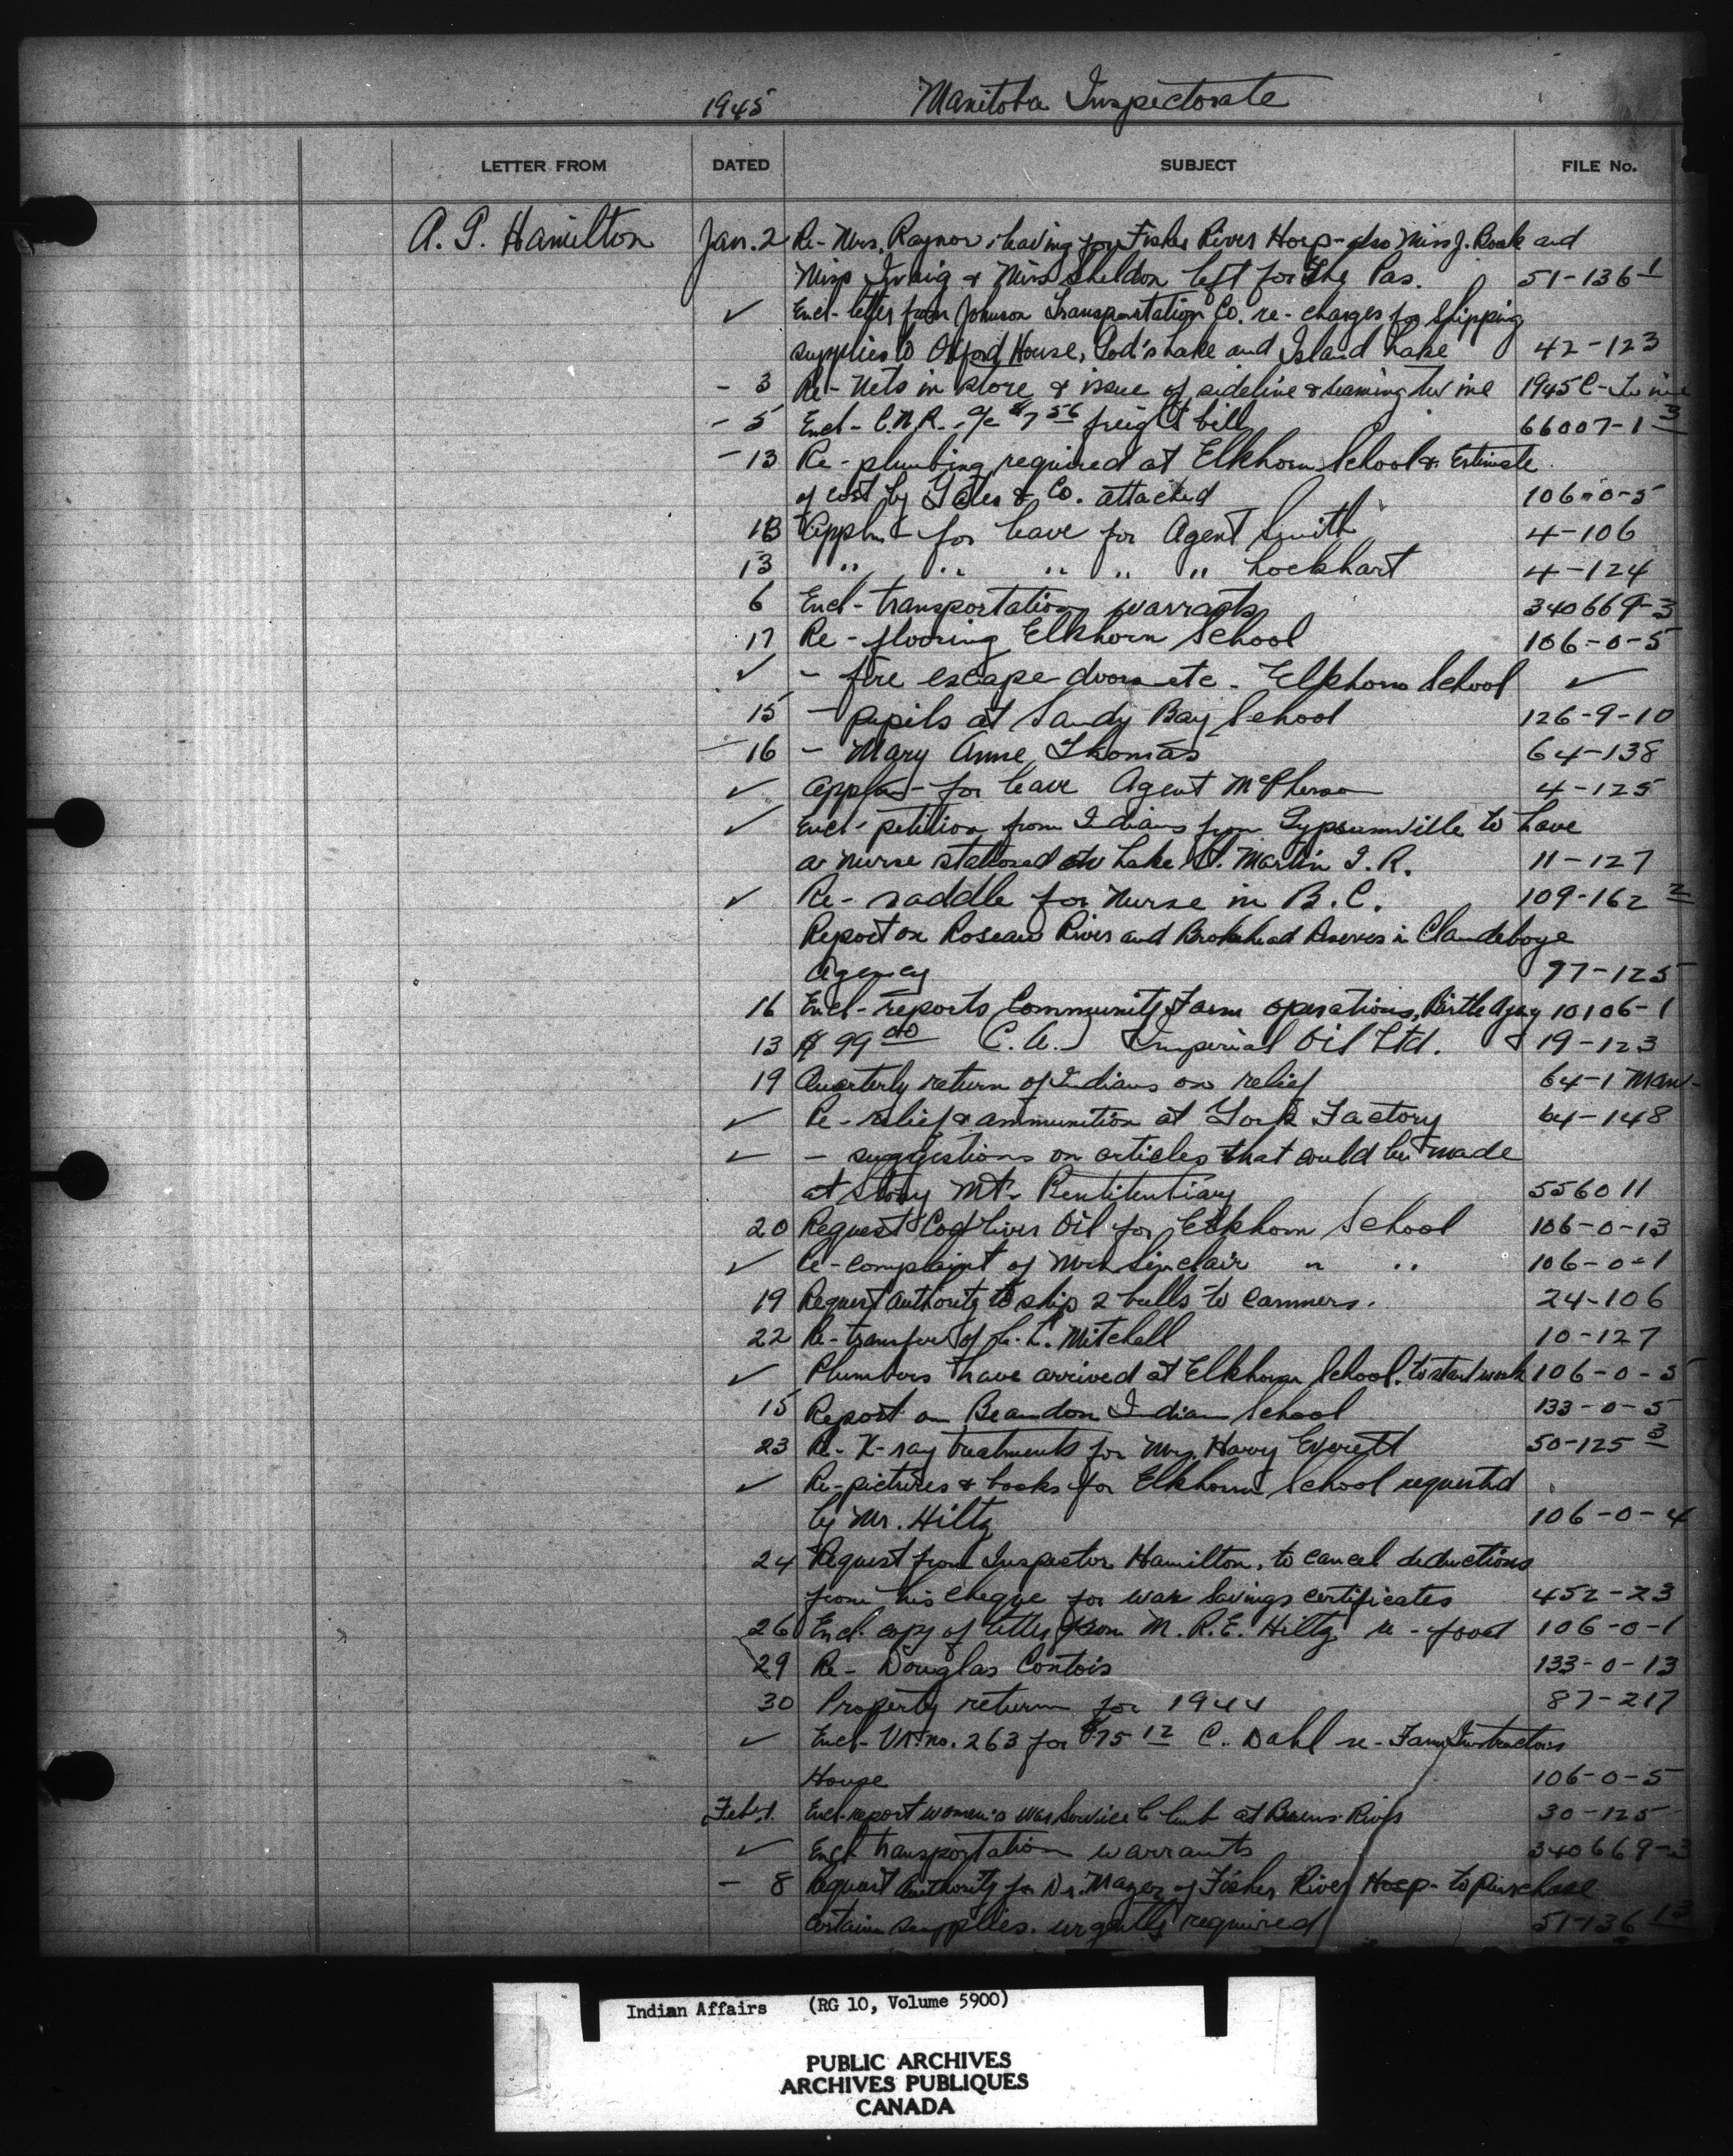 1945 Manitoba Inspectorate
LETTER FROM DATED SUBJECT FILE No.
A. G. Hamilton Jan. 2 Re - Mrs. Raynor leaving for Fisher River Hosp - also Miss J. and
Miss & Miss Sheldon left for The Pas. 51-136-1
✓ Encl - letter from Johnson Transportation Co. re - charges for shipping
supplies to Oxford House, God's Lake and Island Lake 42-123
- 3 Re - Nets in store & issue of sideline & seaming twine 1945 C - Twine
- 5 Encl - C.N.R. a/c $7 56 freight bill 66007-1 3
- 13 Re - plumbing required at Elkhorn School & Estimate
of cost by Yates & Co. attached 106-0-5
13 Appln - for leave for Agent Smith 4-106
13 " " " " " Lockhart 4-124
6 Encl - transportation warrants 340669-3
17 Re - flooring Elkhorn School 106-0-5
✓ - fire escape doors etc - Elkhorn School ✓
15 - pupils at Sandy Bay School 126-9-10
- 16 - Mary Anne Thomas 64-138
✓ Appln - for leave Agent McPherson 4-125
✓ Encl - petition from Indians from Gypsumville to have
a nurse stationed at Lake St. Martin I.R. 11-127
✓ Re - saddle for Nurse in B.C. 109-162 2
Report on Roseau River and Brokenhead Reserves in Clandeboye
Agency 97-125
16 Encl - reports Community Farm operations, Birtle Agcy 10106-1
13 $99 00 C.A. Imperial Oil Ltd. 19-123
19 Quarterly return of Indians on relief 64-1 Man -
✓ Re - relief & ammunition at York Factory 64-148
✓ - suggestions on articles that could be made
at Stony Mt. Pentitentiary 556011
20 Request Cod Liver Oil for Elkhorn School 106-0-13
✓ Re - complaint of Mrs Sinclair " " 106-0-1
19 Request authority to ship 2 bulls to canners. 24-106
22 Re - transfer of L. C. Mitchell 10-127
✓ Plumbers have arrived at Elkhorn School. to start work 106-0-5
15 Report on Brandon Indian School 133-0-5
23 Re - X-ray treatments for Mrs. Harry Everett 50-125 3
✓ Re - pictures & books for Elkhorn School requested
by Mr. Hiltz 106-0-4
24 Request from Inspector Hamilton. to cancel deductions
from his cheque for war savings certificates 452-23
26 Encl - copy of letter from M. R.E. Hiltz re - food 106-0-1
29 Re - Douglas Contois 133-0-13
30 Property return for 1944 87-217
✓ Encl - Vr. no. 263 for $75 12 C. Dahl re - Farm Instructors
House 106-0-5
Feb. 1. Encl - report women's War Service Club at Berens River 30-125
✓ Encl - transportation warrants 340669-3
- 8 Request authority for Dr. of Fisher River Hosp - to purchase
certain supplies. urgently required 51-136 13
Indian Affairs (RG 10, Volume 5900)
PUBLIC ARCHIVES
ARCHIVES PUBLIQUES
CANADA